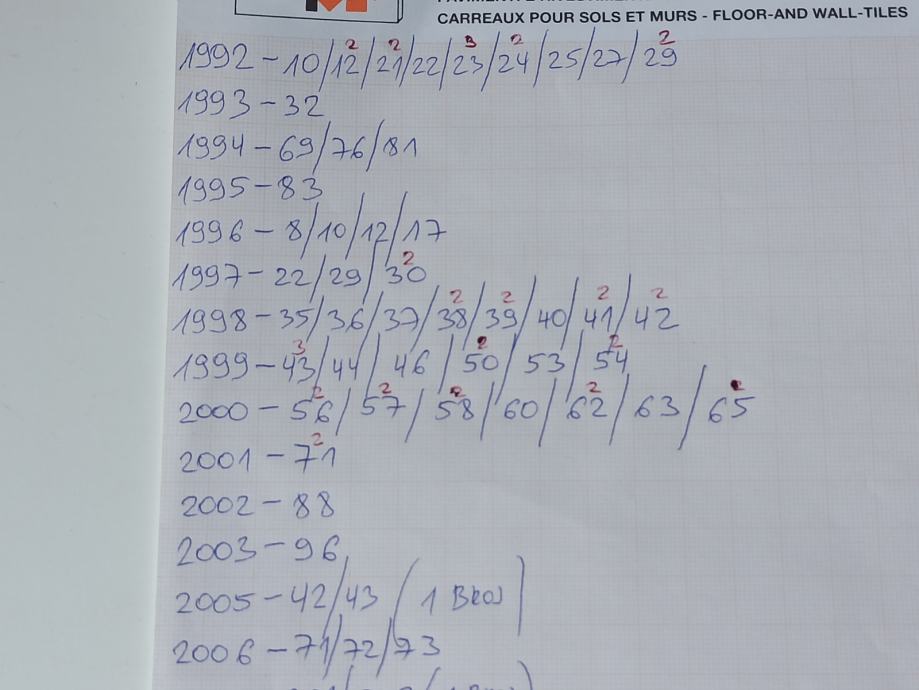 CARREAUX POUR SOLS ET MURS - FLOOR-AND WALL-TILES
1992-10/12²/21²/22/23³/24²/25/27/29²
1993-32
1994-69/76/81
1995-83
1996-8/10/12/17
1997-22/29/30²
1998-35/36/37/38²/39²/40/41²/42²
1999-43³/44/46/50²/53/54²
2000-56²/57²/58²/60/62²/63/65²
2001-71²
2002-88
2003-96
2005-42/43 (1 Broj)
2006-71/72/73